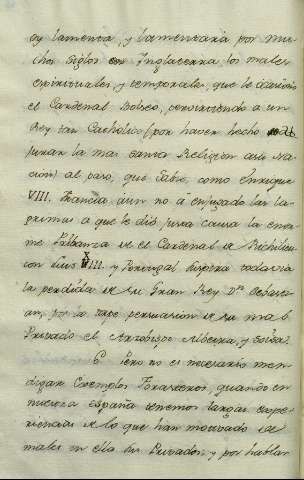 oy lamenta, y lamentaria por mu-
chos siglos Inglaterra, los males
espirituales, y temporales, que le
el Cardenal Bolseo, a un
Rey tan Catholico (por haver hecho
jurar la mas santa Religion na-
cion) al paso, que sabio, como Enrique
VIII. Francia, aun no á enjugado las la-
grimas a que le dió justa causa la
Pribanza de el Cardenal de Richilieu
con Luis XIII. y Portugal suspira todavia
la perdida de su Gran Rey Dn. Sebas-
tian, por la persuasion de su mal
Privado el
6 Pero no es necesario men-
digar Exemplos Forasteros, quando en
nuestra España tenemos largas expe-
riencias de lo que han motivado de
males en ella sus Privados, y por hablar